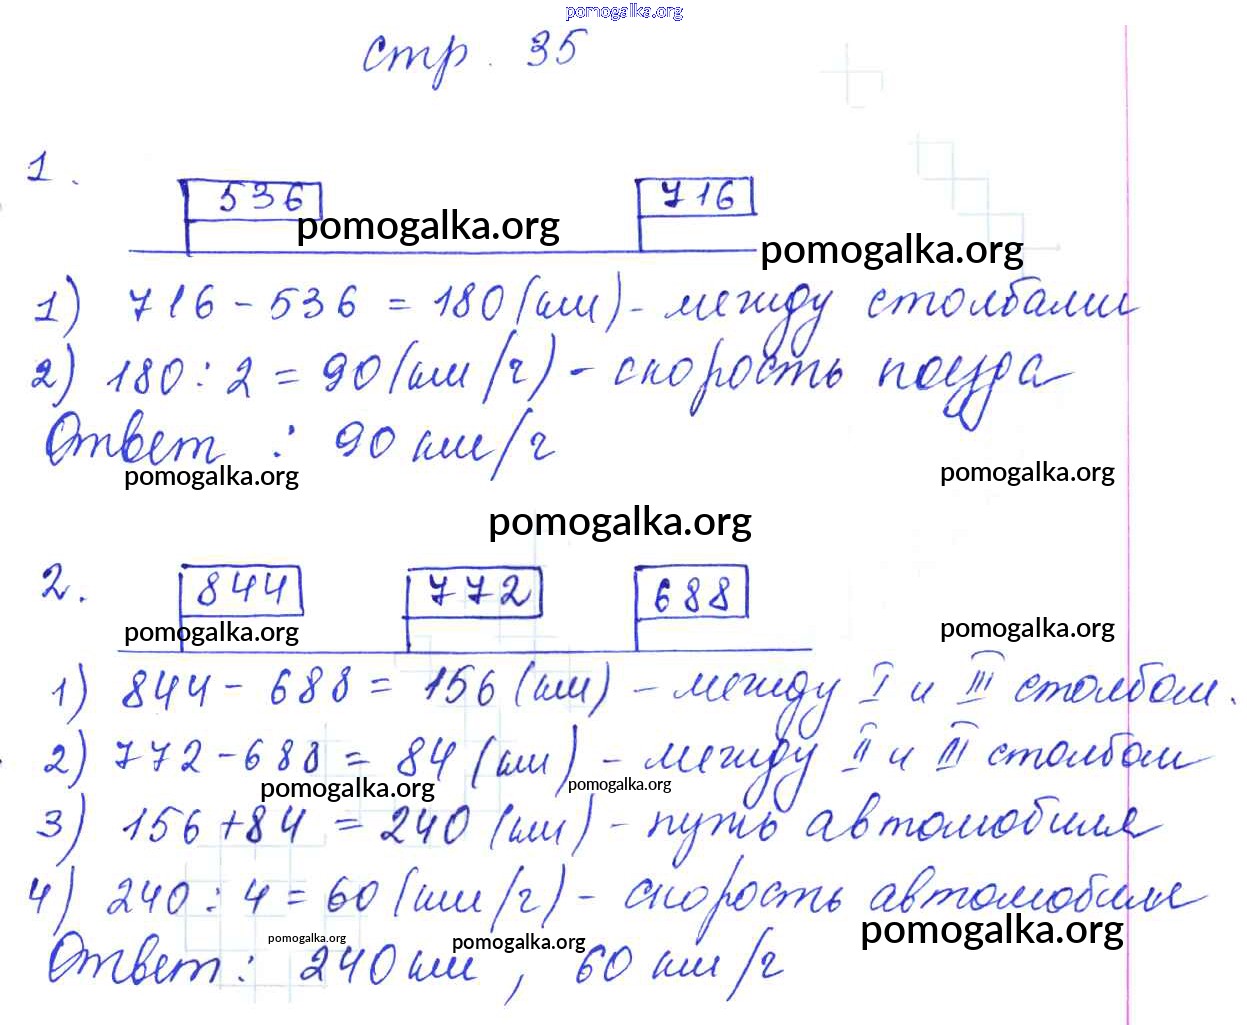 pomogalka.org
стр. 35
1.
536 716
pomogalka.org
pomogalka.org
1) 716 - 536 = 180 (км) - между столбами
2) 180 : 2 = 90 (км/ч) - скорость поезда
Ответ : 90 км/ч
pomogalka.org pomogalka.org
pomogalka.org
2. 844 772 688
pomogalka.org pomogalka.org
1) 844 - 688 = 156 (км) - между I и III столбом.
2) 772 - 688 = 84 (км) - между II и III столбом
pomogalka.org pomogalka.org
3) 156 + 84 = 240 (км) - путь автомобиля
4) 240 : 4 = 60 (км/ч) - скорость автомобиля
pomogalka.org pomogalka.org pomogalka.org
Ответ : 240 км , 60 км/ч